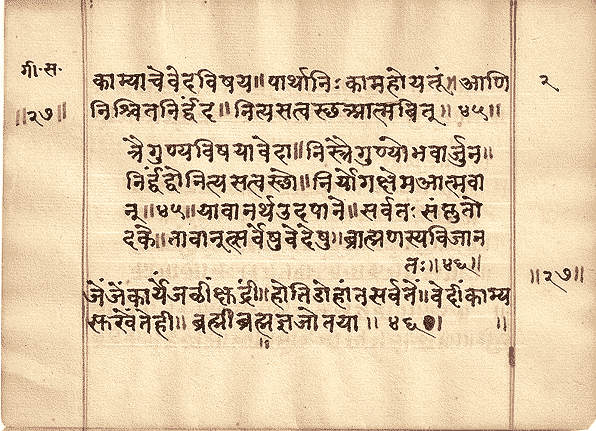 गी. स.
॥२७॥
२
काम्याचे वेदविषय॥ पार्था निःकाम हो यत्नूं॥ आणि
निश्चित निर्द्वंद्व॥ नित्यसत्वस्छ आत्मवित्॥ ४५॥
त्रैगुण्यविषया वेदा॥ निस्त्रैगुण्यो भवार्जुन॥
निर्द्वंद्वो नित्यसत्वस्छो॥ निर्योगक्षेम आत्मवा
न्॥४५॥ यावानर्थ उदपाने॥ सर्वतः संप्लुतो
दके॥ तावान्सर्वेषु वेदेषु॥ ब्राह्मणस्य विजान
तः॥४६॥
॥२७॥
जें जें कार्य जळीं क्षुद्रीं॥ होति डोहांत सर्व तें॥ वेदीं काम्य
ब्रह्मीं ब्रह्मज्ञ जो तया॥ ४६॥